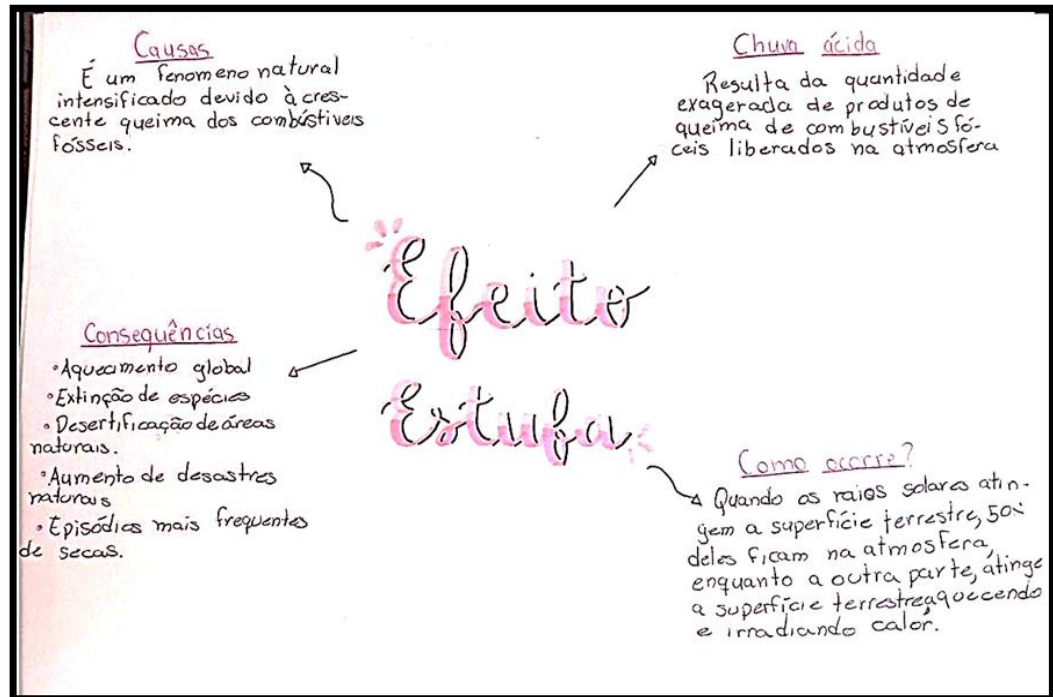 Causas
É um fenomeno natural
intensificado devido à cres-
cente queima dos combústiveis
fósseis.
Chuva ácida
Resulta da quantidade
exagerada de produtos de
queima de combustíveis fó-
ceis liberados na atmosfera
Efeito
Estufa
Consequências
•Aquecimento global
•Extinção de espécies
•Desertificação de áreas
naturais.
•Aumento de desastres
naturais
•Episódios mais frequentes
de secas.
Como ocorre?
Quando os raios solares atin-
gem a superfície terrestre, 50%
deles ficam na atmosfera,
enquanto a outra parte, átinge
a superfície terrestre aquecendo
e irradiando calór.